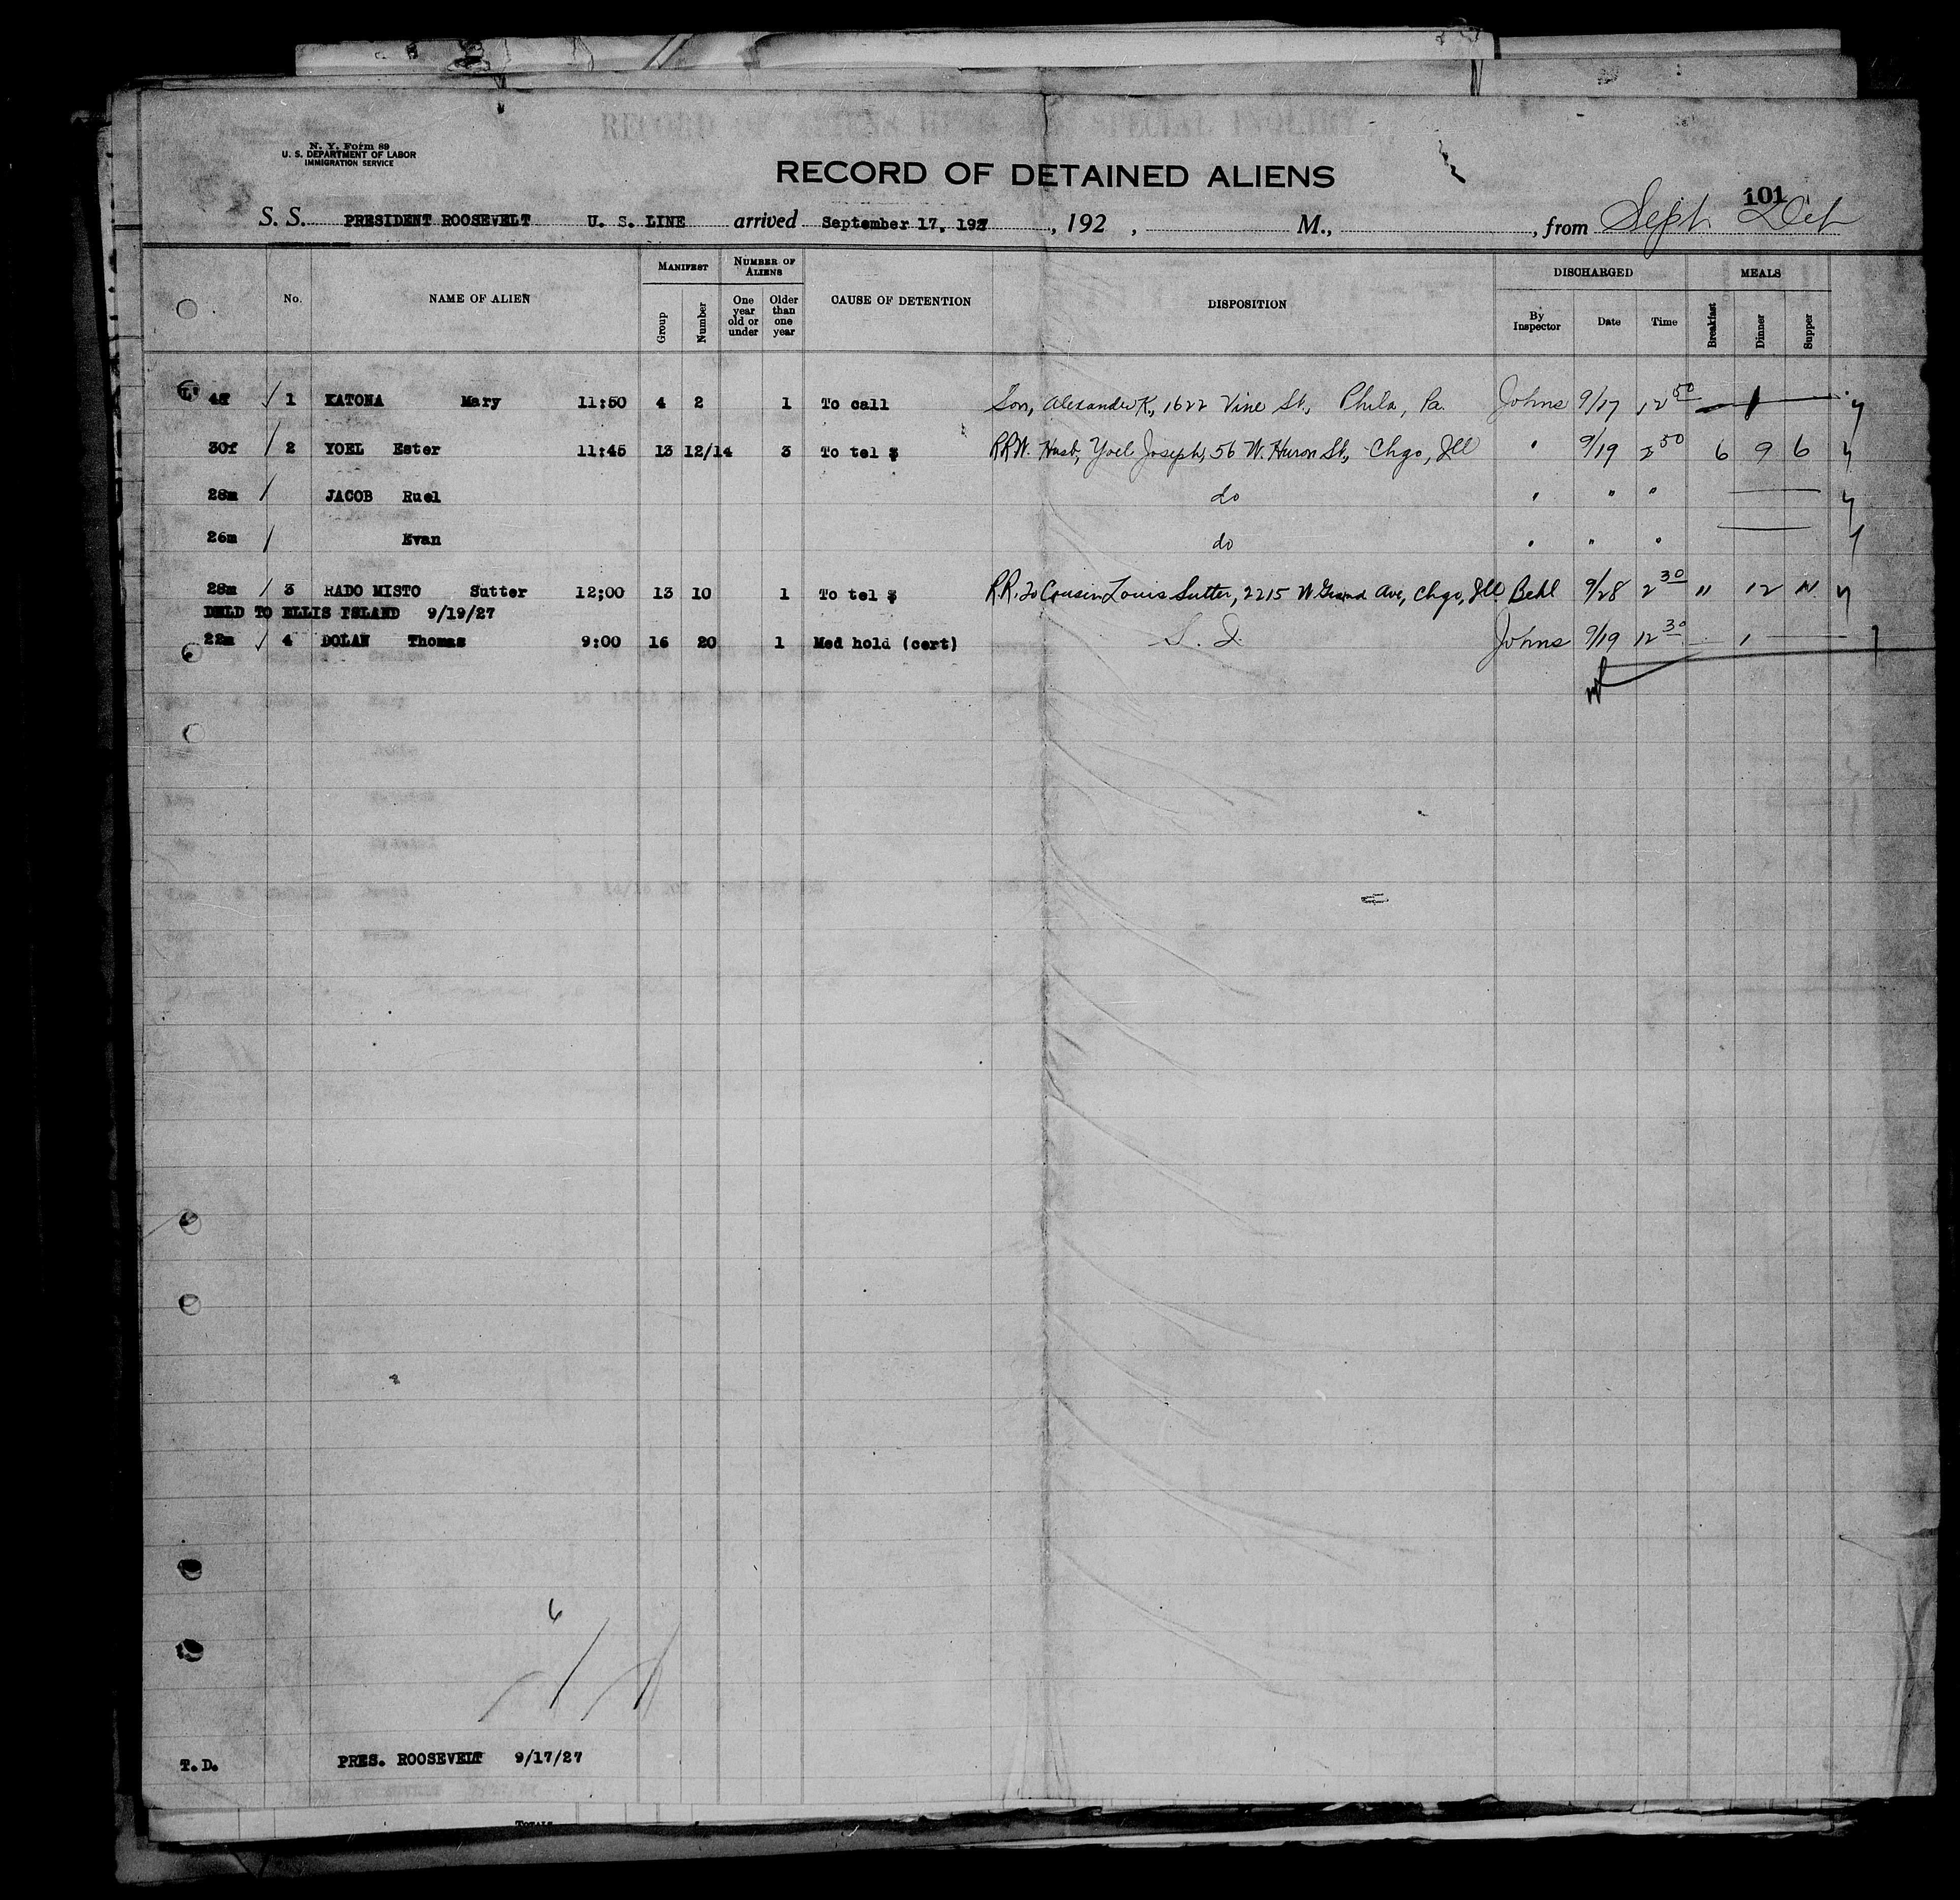 N. Y. Form 89
U. S. DEPARTMENT OF LABOR
IMMIGRATION SERVICE
RECORD OF DETAINED ALIENS
101
S. S. PRESIDENT ROOSEVELT U. S. LINE arrived September 17, 1927, 192 , M., , from Sept Det
No. NAME OF ALIEN MANIFEST Group Number NUMBER OF ALIENS One year old or under Older than one year CAUSE OF DETENTION DISPOSITION DISCHARGED By Inspector Date Time MEALS Breakfast Dinner Supper
1 KATONA Mary 11:50 4 2 1 To call Son, Alexander K., 1622 Vine St., Phila, Pa. Johns 9/17 12 50 1
30f / 2 YOEL Ester 11:45 13 12/14 3 To tel $ RRW. Husb, Yoel Joseph, 56 W. Huron St., Chgo, Ill " 9/19 2 50 6 9 6
28m / JACOB Ruel do " " "
26m / Evan do " " "
28m / 3 RADO MISTO Sutter 12:00 13 10 1 To tel $ R.R. to Cousin Louis Sutter, 2215 W Grand Ave, Chgo, Ill. Behl 9/28 2 30 11 12 11
DELD TO ELLIS ISLAND 9/19/27
22m ✓ 4 DOLAN Thomas 9:00 16 20 1 Med hold (cert) S. I. Johns 9/19 12 30 1
6
T. D. PRES. ROOSEVELT 9/17/27
TOTALS